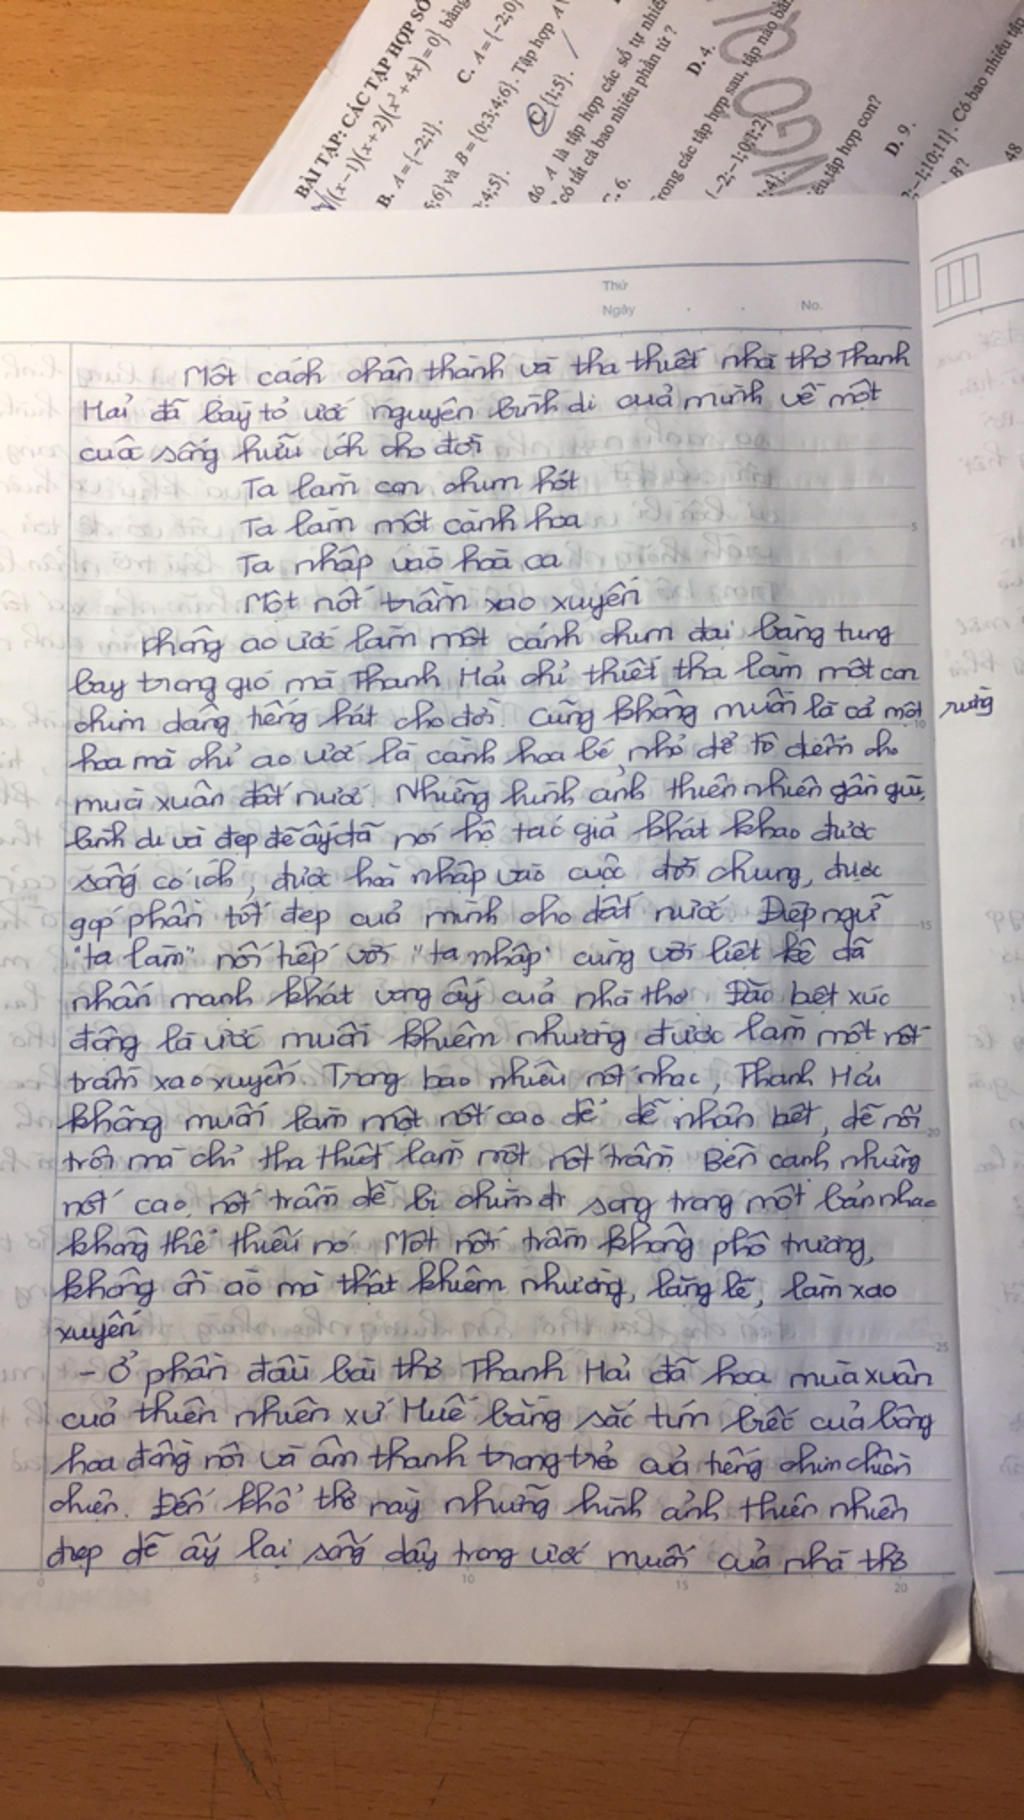 BÀI TẬP: CÁC TẬP HỢP SỐ
(x−1)(x+2)(x³+4x)=0} bằng
B. A={−2;1}.
C. A={−2;0}
;6} và B={0;3;4;6}. Tập hợp A\
;4;5}.
C. {1;5}.
đó A là tập hợp các số tự nhiên
có tất cả bao nhiêu phần tử ?
C. 6.
D. 4.
rong các tập hợp sau, tập nào bằ
{−2;−1;0;1;2}
;4}.
tập hợp con?
D. 9.
;−1;10;11}. Có bao nhiêu tập
B?
48
Thứ
Ngày
No.
Một cách chân thành và tha thiết nhà thơ Thanh
Hải đã bày tỏ ước nguyện bình dị của mình về một
cuộc sống hữu ích cho đời
Ta làm con chim hót
Ta làm một cành hoa
Ta nhập vào hoà ca
Một nốt trầm xao xuyến
không ao ước làm một cánh chim đại bàng tung
bay trong gió mà Thanh Hải chỉ thiết tha làm một con
chim dâng tiếng hát cho đời. Cũng không muốn là cả một rừng
hoa mà chỉ ao ước là cành hoa bé nhỏ để tô điểm cho
mùa xuân đất nước. Những hình ảnh thiên nhiên gần gũi,
bình dị và đẹp đẽ ấy đã nói hộ tác giả khát khao được
sống có ích, được hoà nhập vào cuộc đời chung, được
góp phần tốt đẹp của mình cho đất nước. Điệp ngữ
"ta làm" nối tiếp với "ta nhập" cùng với liệt kê đã
nhấn mạnh khát vọng ấy của nhà thơ. Đặc biệt xúc
động là ước muốn khiêm nhường được làm một nốt
trầm xao xuyến. Trong bao nhiêu nốt nhạc, Thanh Hải
không muốn làm một nốt cao để dễ nhận biết, dễ nổi
trội mà chỉ tha thiết làm một nốt trầm. Bên cạnh những
nốt cao, nốt trầm dễ bị chìm đi song trong một bản nhạc
không thể thiếu nó. Một nốt trầm không phô trương,
không ồn ào mà thật khiêm nhường, lặng lẽ, làm xao
xuyến
- Ở phần đầu bài thơ Thanh Hải đã hoạ mùa xuân
của thiên nhiên xứ Huế bằng sắc tím biếc của bông
hoa đồng nội và âm thanh trong trẻo của tiếng chim chiền
chiện. Đến khổ thơ này những hình ảnh thiên nhiên
đẹp đẽ ấy lại sống dậy trong ước muốn của nhà thơ
5
10
15
20
25
0
5
10
15
20